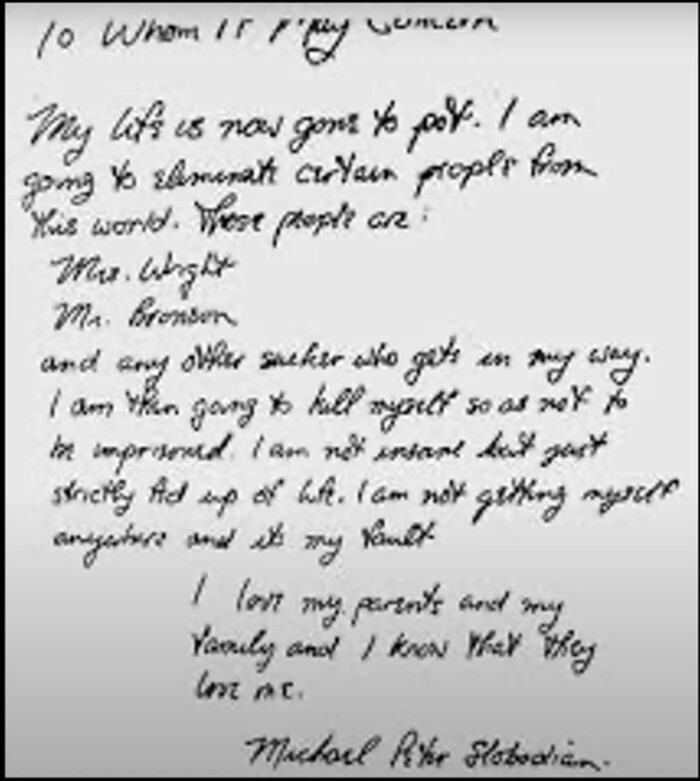 To Whom It May Concern
My life is now gone to pot. I am
going to eliminate certain people from
this world. These people are:
Mrs. Wright
Mr. Bronson
and any other sucker who gets in my way.
I am then going to kill myself so as not to
be imprisoned. I am not insane but just
strictly fed up of life. I am not getting myself
anywhere and its my fault
I love my parents and my
family and I know that they
love me.
Michael Peter Slobodian.